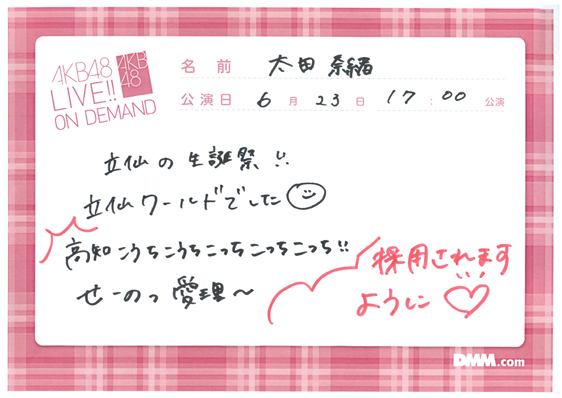 AKB48
LIVE!!
ON DEMAND
AKB
48
名前 太田奈緒
公演日 6月23日 17:00 公演
立仙の生誕祭!!
立仙ワールドでした
高知こうちこうちこっちこっちこっち!!
せーのっ愛理〜
採用されます
ように♡
DMM.com